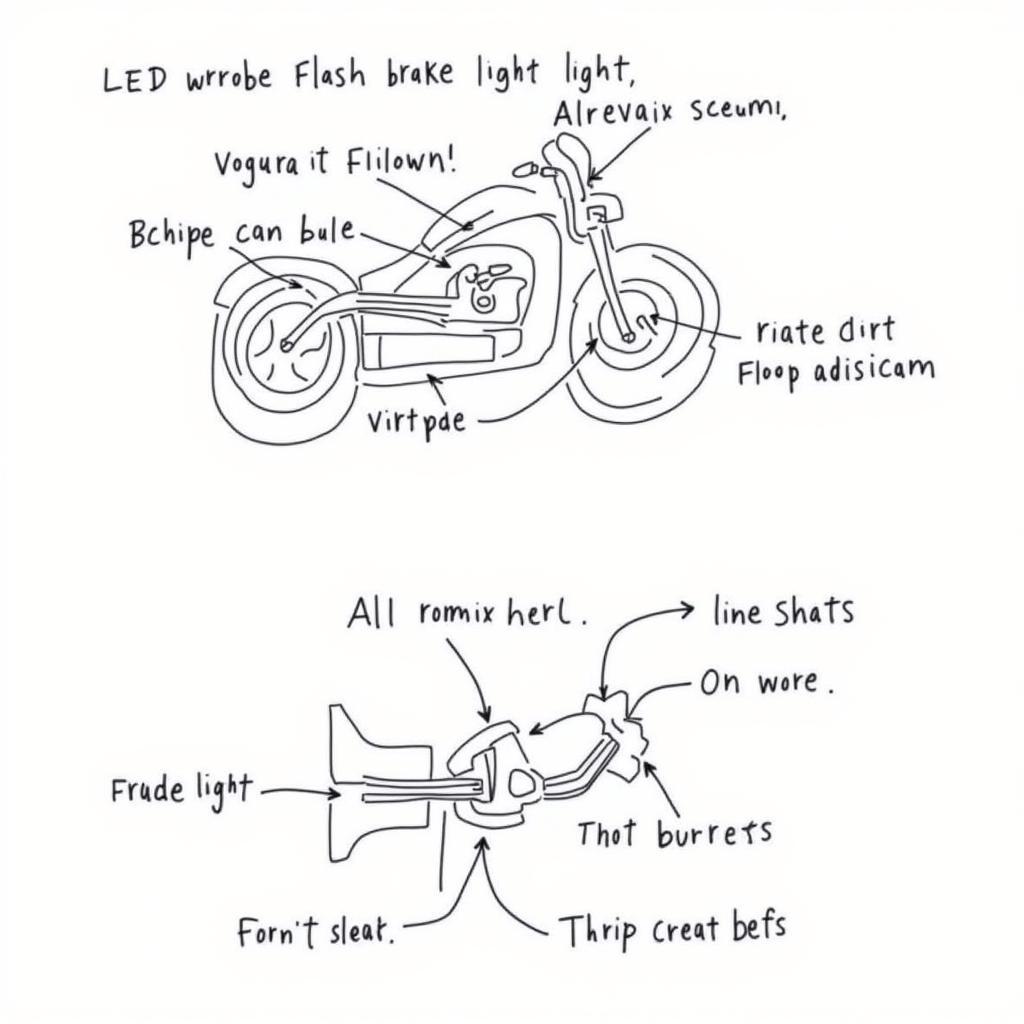 LED wrrobe Flash brake light light,
Alrevaix sceumı,
Vogura it Flilown!
Bchipe can bule
riate dirt
Floop adisicam
Virtpde
All romix herl.
line Shats
On wore.
Frude light
Thot burrets
Forn't sleat.
Thrip creat befs